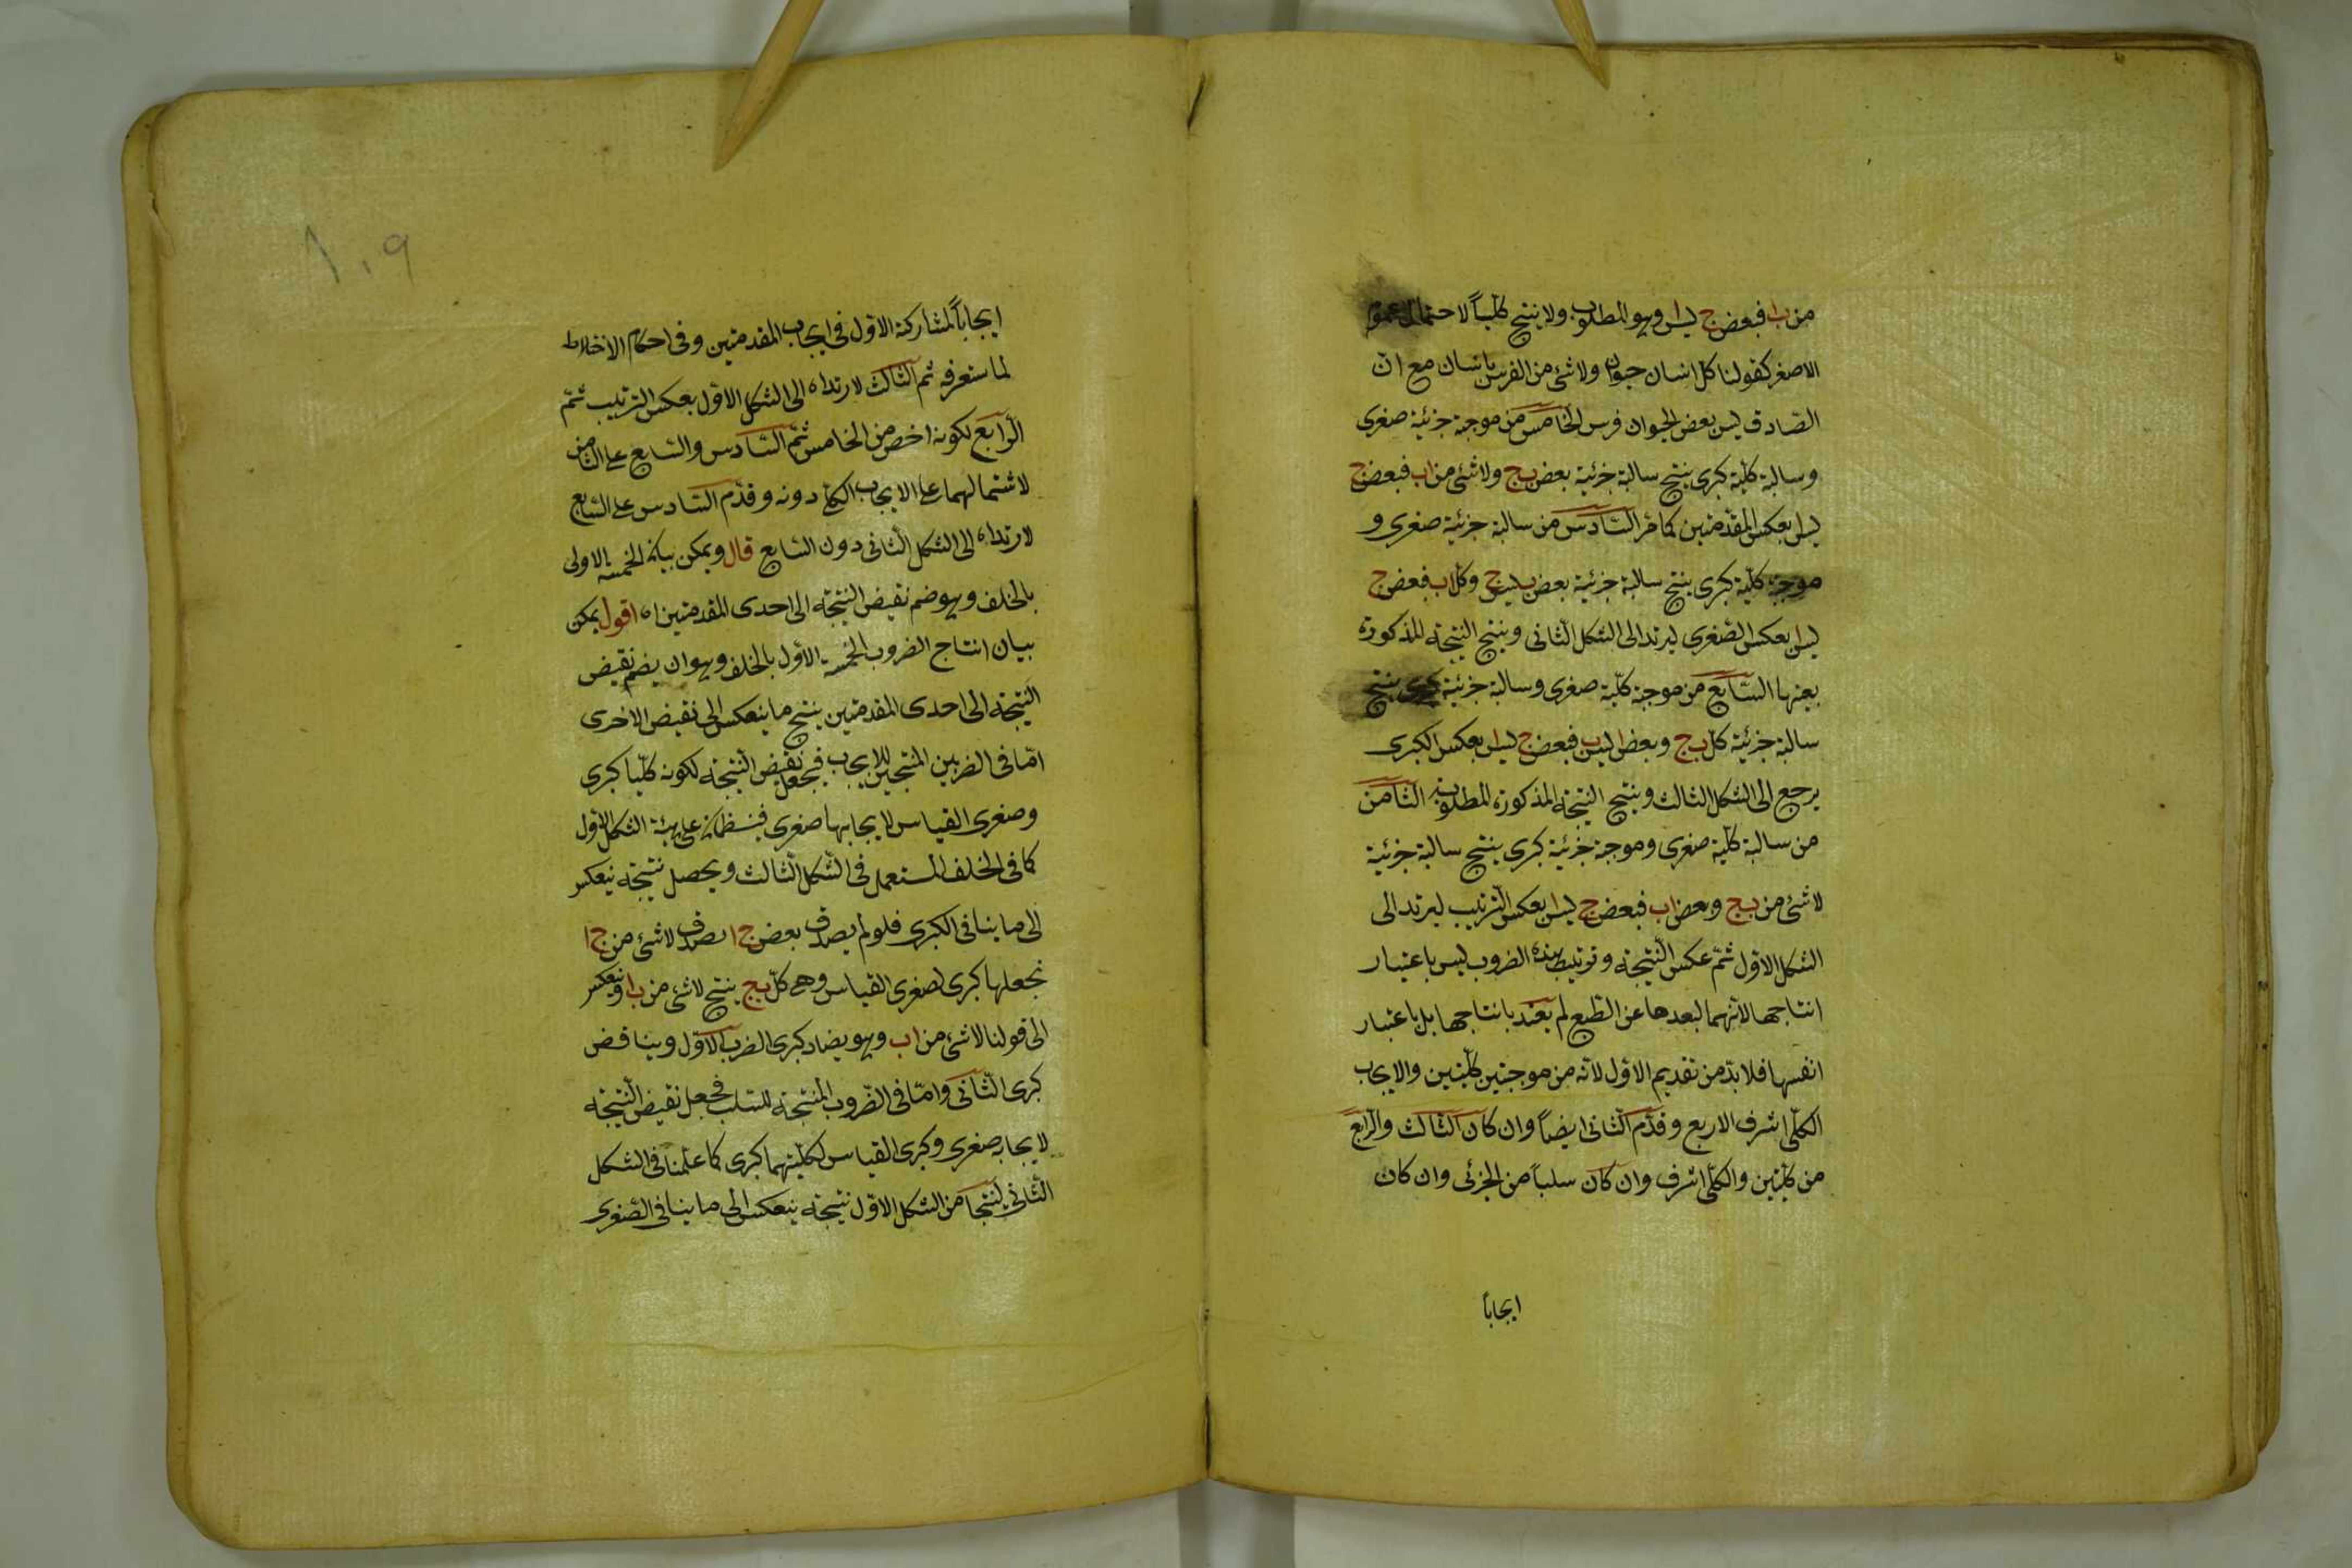 من ب ا فبعض ج ليس ا وهو المطلوب ولا ينتج كليّاً لاحتمال عموم
الاصغر كقولنا كل انسان حيوان ولا شئ من الفرس بانسان مع انّ
الصّادق ليس بعض الحيوان فرس الخامس من موجبة جزئية صغرى
وسالبة كليّة كبرى ينتج سالبة جزئية بعض ب ج ولا شئ من ا ب فبعض ج
ليس ا بعكس المقدّمتين كما مر السّادس من سالبة جزئية صغرى و
موجبة كليّة كبرى ينتج سالبة جزئية بعض ب ليس ج وكل ا ب فبعض ج
ليس ا بعكس الصّغرى ليرتد الى الشكل الثانى وينتج النتيجة المذكورة
بعينها السّابع من موجبة كليّة صغرى وسالبة جزئية كبرى ينتج
سالبة جزئية كل ب ج وبعض ا ليس ب فبعض ج ليس ا بعكس الكبرى
يرجع الى الشكل الثالث وينتج النتيجة المذكورة المطلوبة الثامن
من سالبة كليّة صغرى وموجبة جزئية كبرى ينتج سالبة جزئية
لا شئ من ب ج وبعض ا ب فبعض ج ليس ا بعكس الترتيب ليرتد الى
الشكل الاول ثمّ عكس النّتيجة وترتيب هذه الضروب ليس باعتبار
انتاجها لانّهما لبعدها عن الطّبع لم يعتد بانتاجها بل باعتبار
انفسها فلا بدّ من تقديم الاوّل لانّه من موجبتين كليّتين والايجاب
الكلّى اشرف الاربع وقدّم الثّانى ايضاً وان كان الثالث والرّابع
من كليّتين والكلّى اشرف وان كان سلباً من الجزئى وان كان
ايجاباً
١٠٩
ايجاباً لمشاركة الاوّل فى ايجاب المقدمتين وفى احكام الاختلاط
لما ستعرفه ثم الثّالث لارتداه الى الشكل الاوّل بعكس الترتيب ثمّ
الرّابع لكونه اخص من الخامس ثمّ السّادس والسّابع على الثامن
لاشتمالهما على الايجاب الكلى دونه وقدّم السّادس على السّابع
لارتداه الى الشكل الثّانى دون السّابع قال ويمكن بيان الخمسة الاولى
بالخلف وهو ضم نقيض النتيجة الى احدى المقدمتين اه اقول يمكن
بيان انتاج الضروب الخمسة الاول بالخلف وهو ان يضم نقيض
النتيجة الى احدى المقدمتين ينتج ما ينعكس الى نقيض الاخرى
امّا فى الضربين المنتجين للايجاب فيجعل نقيض النّتيجة لكونه كليّا كبرى
وصغرى القياس لايجابها صغرى فينتظمان على هيئة الشكل الاول
كما فى الخلف المستعمل فى الشّكل الثّالث ويحصل نتيجة ينعكس
الى ما ينافى الكبرى فلو لم يصدق بعض ج ا لصدق لا شئ من ج ا
نجعلها كبرى لصغرى القياس وهى كل ب ج ينتج لا شئ من ب ا وينعكس
الى قولنا لا شئ من ا ب وهو يضاد كبرى الضرب الاوّل ويناقض
كبرى الثّانى وامّا فى الضّروب المنتجة للسّلب فيجعل نقيض النّتيجة
لايجابه صغرى وكبرى القياس لكليّتهما كبرى كما علمنا فى الشكل
الثّانى لينتجا من الشكل الاوّل نتيجة ينعكس الى ما ينافى الصّغرى